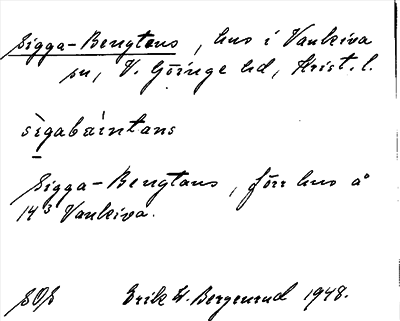 Sigga-Bengtans, hus i Vankiva
sn, V. Göinge hd, Krist. l.
sìgabáintans
Sigga-Bengtans, förr hus å
14³ Vankiva.
SOS Erik W. Bergenrud 1948.